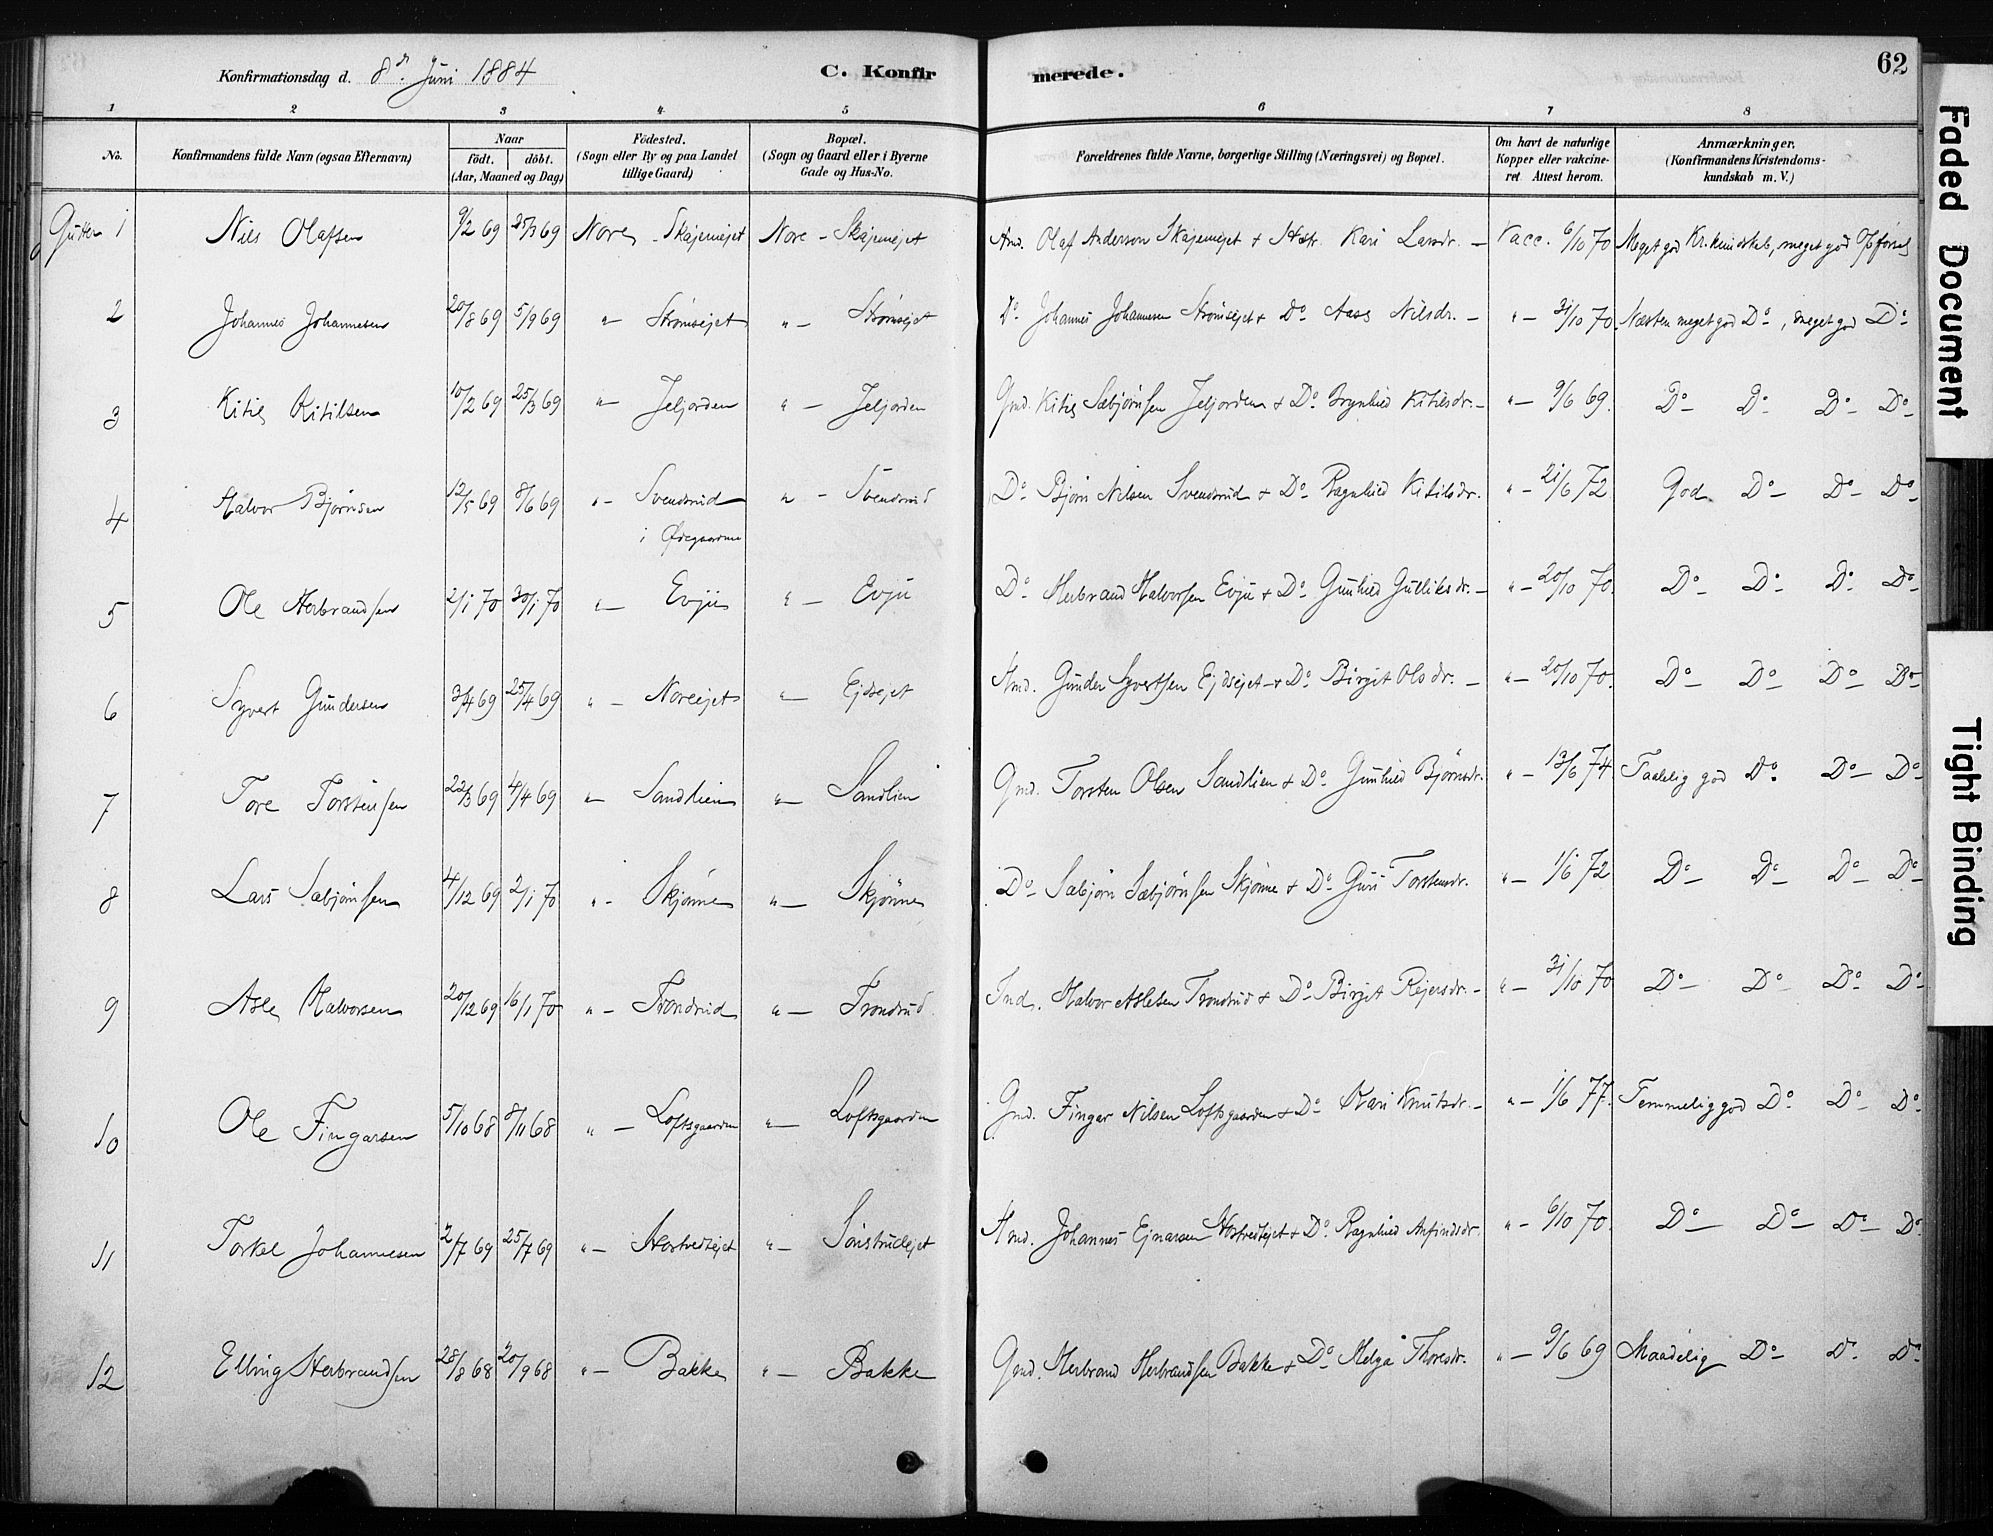 Konfirmationsdag d. 8d. Juni 1884
C. Konfirmerede.
62
1 2 3 4 5 6 7 8
No.
Konfirmandens fulde Navn (ogsaa Efternavn)
Naar
födt. döbt.
(Aar, Maaned og Dag)
Födested.
(Sogn eller By og paa Landet
tillige Gaard)
Bopæl.
(Sogn og Gaard eller i Byerne
Gade og Hus-No.
Forældrenes fulde Navne, borgerlige Stilling (Næringsvei) og Bopæl.
Om havt de naturlige
Kopper eller vakcine-
ret. Attest herom.
Anmærkninger.
(Konfirmandens Kristendoms-
kundskab m. V.)
Gutter 1 Nils Olafsen 9/2 69 25/3 69 Nore - Skajemejet Nore - Skajemejet Amd. Olaf Anderson Skajemejet + Hstr. Kari Larsdr. - Vacc. 6/10 70 Meget god Kr.kundskab, meget god Opførsel
2 Johannes Johannesen 20/8 69 5/9 69 " - Strømsejet " - Strømsejet Do Johannes Johannesen Strømsejet + Do Aase Nilsdr. - " - 31/10 70. Næsten meget god Do, meget god Do
3 Kitil Kitilsen 10/2 69 25/3 69 " - Jeljorden " - Jeljorden Gmd. Kitil Sæbjørnsen Jeljorden + Do Brynhild Kitilsdr. - " - 9/6 69. Do Do Do Do
4 Halvor Bjørnsen 12/5 69 8/6 69 " - Svendsrud " - Svendsrud Do Bjørn Nilsen Svendsrud + Do Ragnhild Kitilsdr. " - 21/6 72 God Do Do Do
i Ødegaardene
5 Ole Herbrandsen 2/1 70 30/1 70 " - Evju " - Evju Do Herbrand Halvorsen Evju + Do Gunhild Gulliksdr. - " - 20/10 70. Do Do Do Do
6 Syvert Gundersen 3/4 69 25/4 69 " - Noreejet " - Ejdsejet Amd. Gunder Syvertsen Ejdsejet + Do Birgit Olsdr. - " - 20/10 70. Do Do Do Do
7 Tore Torstensen 22/3 69 4/4 69 " - Sandlien " - Sandlien Gmd. Torsten Olsen Sandlien + Do Gunhild Bjørnsdr. " - 13/6 74. Taalelig god Do Do Do
8 Lars Sæbjørnsen 4/12 69 2/1 70 " - Skjønne " - Skjønne Do Sæbjørn Sæbjørnsen Skjønne + Do Guri Torstensdr. " - 1/6 72 Do Do Do Do
9 Asle Halvorsen 20/12 69 16/1 70 " - Trondrud " - Trondrud Ind. Halvor Aslesen Trondrud + Do Birgit Rejersdr. - " - 31/10 70 Do Do Do Do
10 Ole Fingarsen 5/10 68 8/11 68 " - Loftsgaarden " - Loftsgaarden Gmd. Fingar Nilsen Loftsgaarden + Do Kari Knutsdr. - " - 1/6 77. Temmelig god Do Do Do
11 Torkel Johannesen 2/7 69 25/7 69 " - Stortvedtejet " - Sønstrudejet Amd. Johannes Ejnarsen + Do Ragnhild Arfindsdr. " - 6/10 70. Do Do Do Do
12 Elling Herbrandsen 28/8 68 20/9 68 " - Bakke " - Bakke Gmd. Herbrand Herbrandsen Bakke + Do Helga Thoresdr. " - 9/6 69 Maadelig Do Do Do
Faded Document
Tight Binding